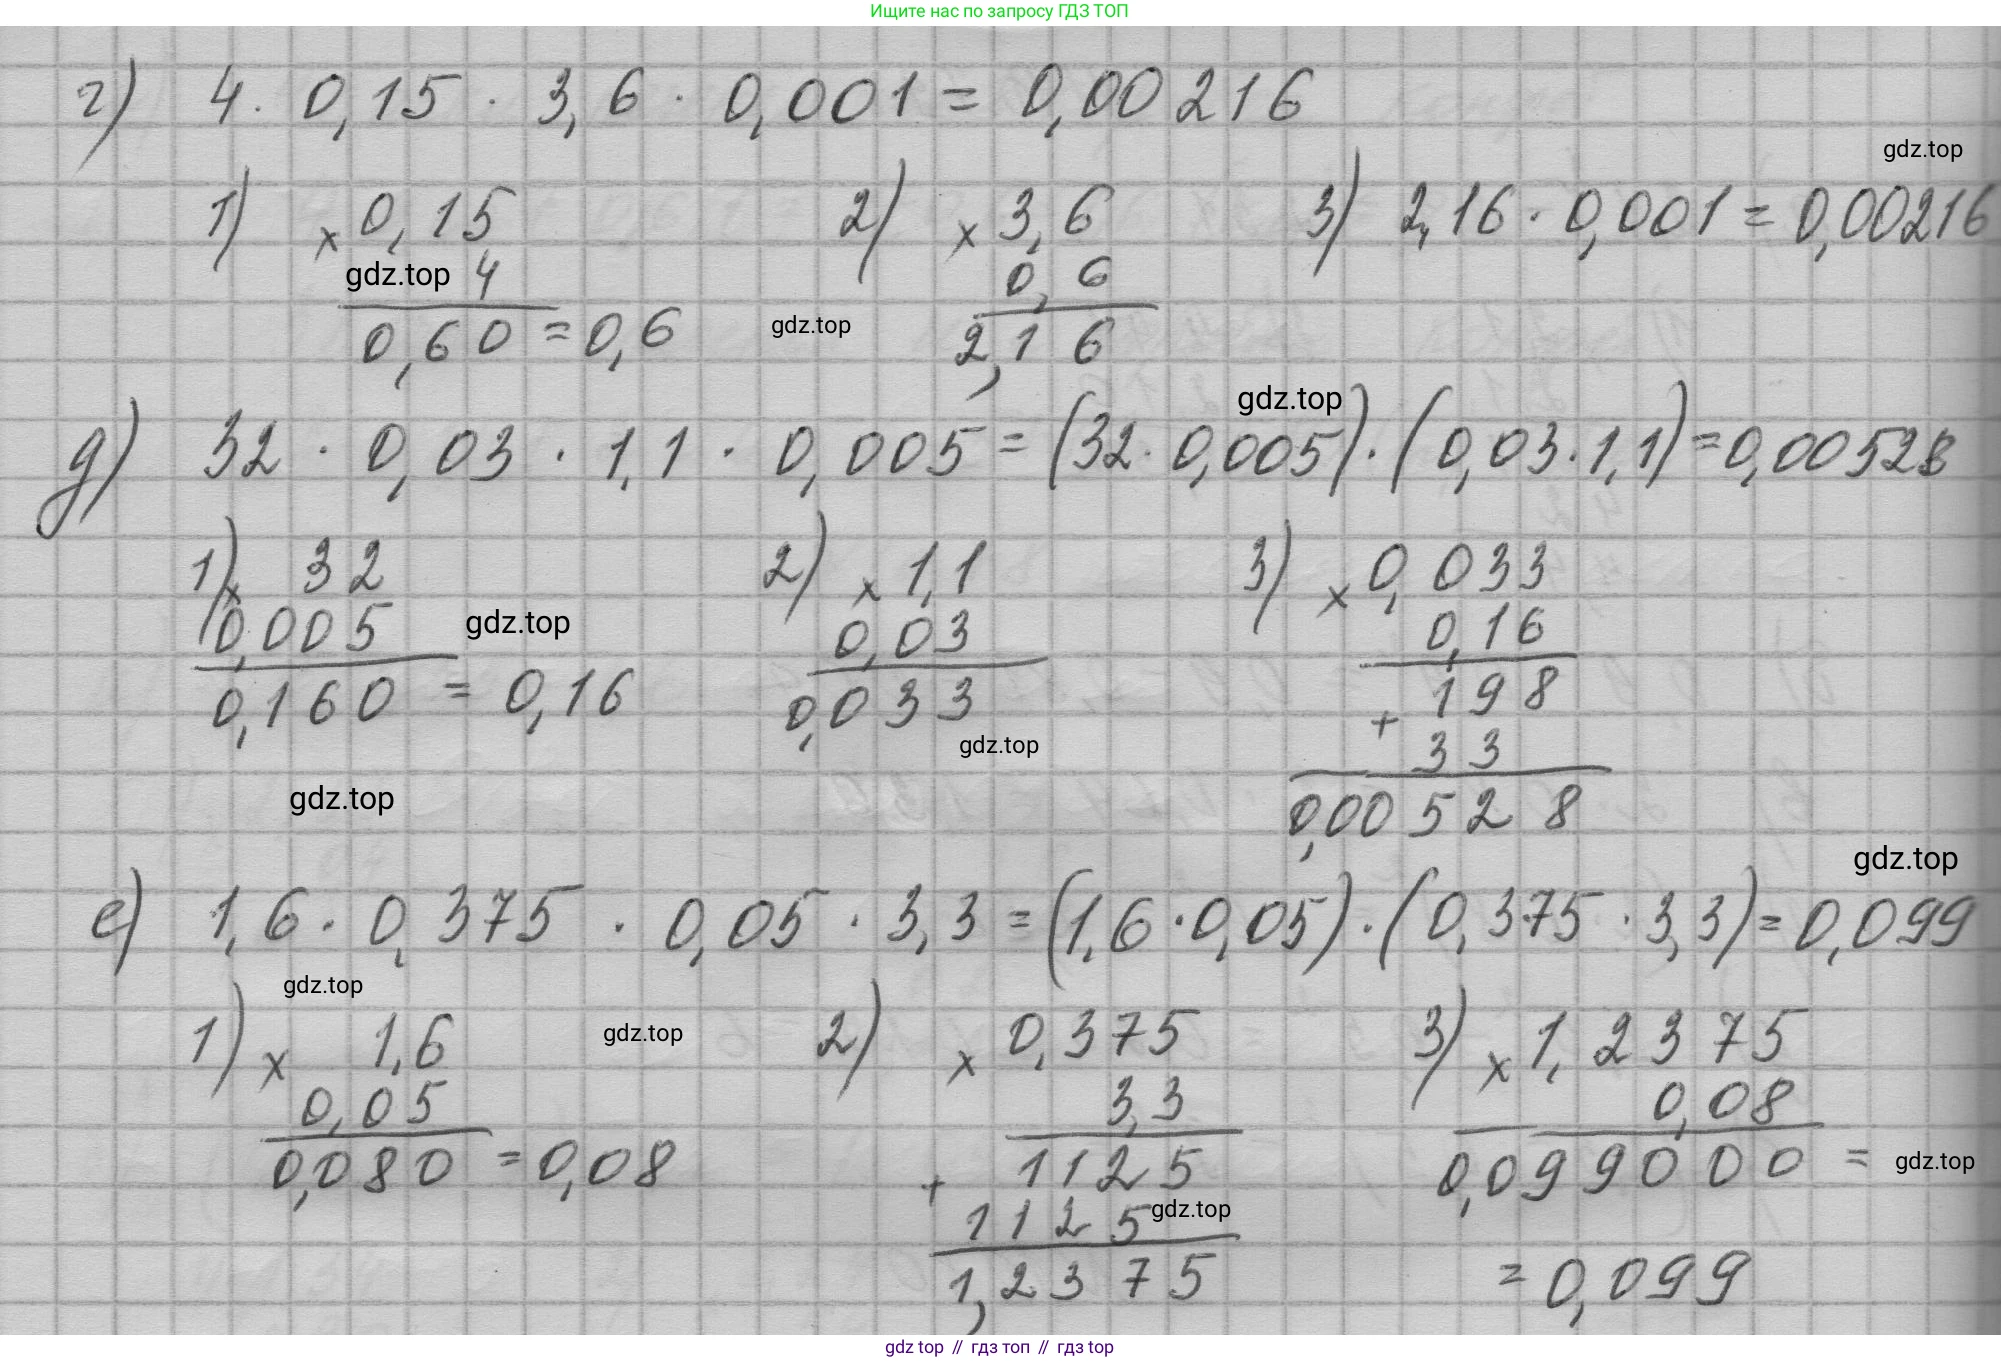 Ищите нас по запросу ГДЗ ТОП
г) 4 · 0,15 · 3,6 · 0,001 = 0,00216
gdz.top
1) × 0,15 2) × 3,6 3) 2,16 · 0,001 = 0,00216
gdz.top 4 0,6
0,60 = 0,6 gdz.top 2,16
gdz.top
д) 32 · 0,03 · 1,1 · 0,005 = (32 · 0,005) · (0,03 · 1,1) = 0,00528
1) × 32 2) × 1,1 3) × 0,033
0,005 gdz.top 0,03 0,16
0,160 = 0,16 0,033 198
gdz.top + 33
gdz.top 0,00528
gdz.top
е) 1,6 · 0,375 · 0,05 · 3,3 = (1,6 · 0,05) · (0,375 · 3,3) = 0,099
gdz.top
1) × 1,6 gdz.top 2) × 0,375 3) × 1,2375
0,05 3,3 0,08
0,080 = 0,08 + 1125 0,099000 = gdz.top
1125 gdz.top
1,2375 = 0,099
gdz top // гдз топ // гдз top